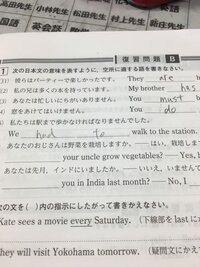 黒田先生 小林先生 松田先生 村上先生 新庄先生
国語 英会話 数学 英語
復習問題 B
1 次の日本文の意味を表すように，空所に適する語を書きなさい。
(1) 彼らはパーティーで楽しかった。 They are
(2) 私の兄は多くの本を持っています。 My brother has
(3) あなたは忙しいにちがいありません。 You must
(4) 窓をあけてはいけません。 You do
(5) 私たちは駅まで歩かなければなりませんでした。
We had to walk to the station.
あなたのおじさんは野菜を栽培しますか。
your uncle grow vegetables? Yes, h
あなたは先月，インドにいましたか。――いいえ，いませんで
you in India last month? ― No, I
次の文を( )内の指示にしたがって書きかえなさい。
Kate sees a movie every Saturday. (下線部を last に
They will visit Yokohama tomorrow. (疑問文にかえて